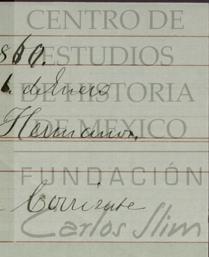 CENTRO DE
860.
ESTUDIOS
6 de Enero
DE HISTORIA
Hermanos,
DE MEXICO
FUNDACIÓN
Corriente
Carlos Slim